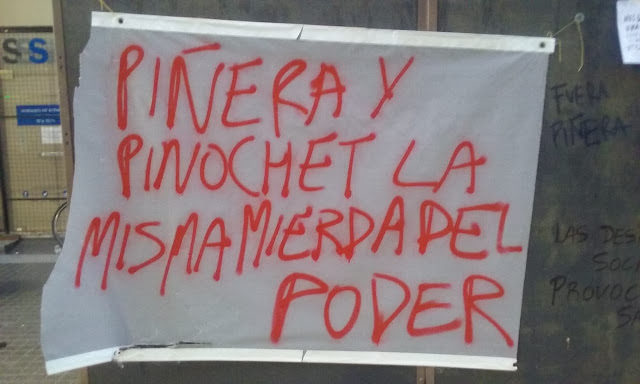 PIÑERA Y
PINOCHET LA
MISMA MIERDA DEL
PODER
FUERA
PIÑERA
LAS DES
SOC
PROVOC
S